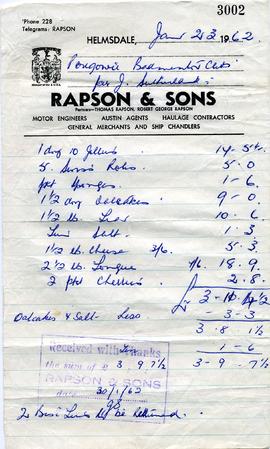 3002
'Phone 228
Telegrams: RAPSON
HELMSDALE, Jan 23 1962
Badminton Club
per J. Sutherland
RAPSON & SONS
Partners—THOMAS RAPSON, ROBERT GEORGE RAPSON
MOTOR ENGINEERS AUSTIN AGENTS HAULAGE CONTRACTORS
GENERAL MERCHANTS AND SHIP CHANDLERS
1 doz Jellies
5. Swiss Rolls 5. 0
pkt Sponges 1-6
1½ doz Oatcakes 9-0
1½ lb. 10. 6
Salt 1. 3
1½ lb. Cheese 3/6 5. 3
2½ lb. Tongue 7/6 18. 9
2 pkt 2. 8
Oatcakes & Salt Less 3-3
3. 8 1½
1-6
3-9. 7½
Received with thanks
the sum of £ 3. 9. 7½
RAPSON & SONS
date 30/1/62
2 be Returned.